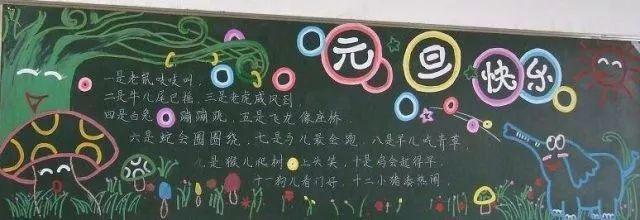 元旦快乐
一是老鼠吱吱叫，
二是牛儿尾巴摇，三是老虎威风到，
四是白兔蹦蹦跳，五是飞龙像座桥，
六是蛇会圈圈绕，七是马儿最会跑，八是羊儿吃青草，
九是猴儿爬树上尖尖，十是鸡会起得早，
十一狗儿看门好，十二小猪凑热闹，